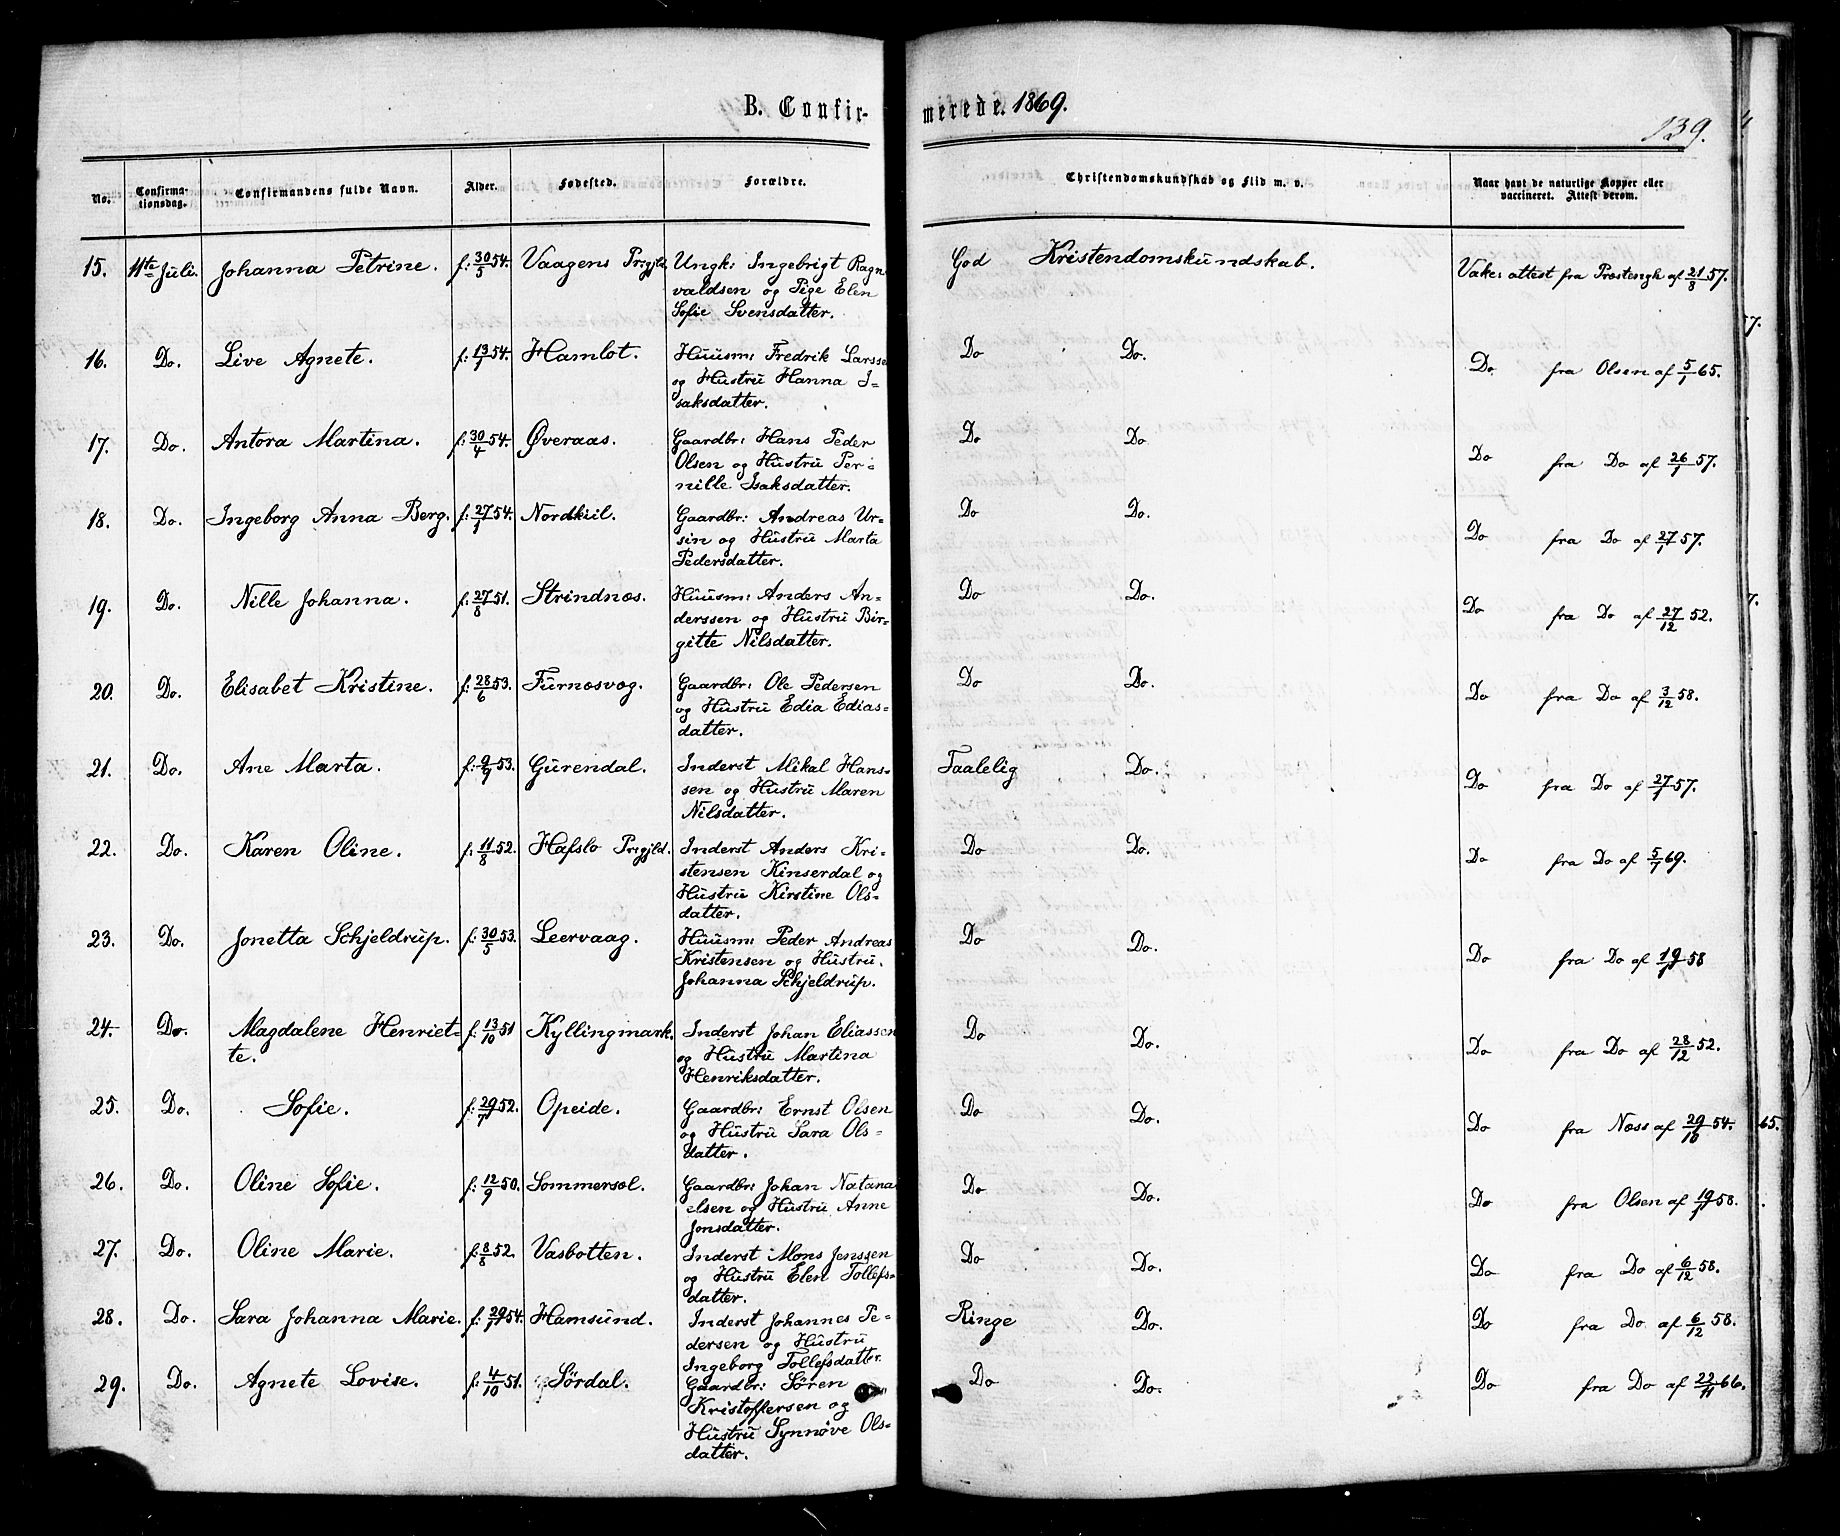 B. Confirmerede. 1869.
139.
No. Confirmationsdag. Confirmandens fulde Navn. Alder. Fødested. Forældre. Christendomskundskab og Flid m. v. Naar havt de naturlige Kopper eller vaccineret. Attest derom.
15. 11te Juli. Johanna Petrine. f: 30/5 54. Vaagens Prgjld. Ungk: Ingebrigt Ragn God Kristendomskundskab. Vak: attest fra Præstengh af 21/8 57.
valdsen og Pige Elen
Sofie Svensdatter.
16. Do. Live Agnete. f: 13/1 54. Hamlot. Huusm: Fredrik Larsse Do Do. Do fra Olsen af 5/1 65.
og Hustru Hanna I-
saksdatter.
17. Do. Antora Martina. f: 30/4 54. Øveraas. Gaardbr: Hans Peder Do Do Do fra Do af 26/1 57.
Olsen og Hustru Per-
nille Isaksdatter.
18. Do. Ingeborg Anna Berg. f: 27/1 54. Nordkiil. Gaardbr: Andreas Ur- Do Do. Do fra Do af 27/1 57.
sin og Hustru Marta
Pedersdatter.
19. Do. Nille Johanna. f: 27/8 51. Strindnæs. Huusm: Anders An- Do Do. Do fra Do af 27/12 52.
derssen og Hustru Bir-
gitte Nilsdatter.
20. Do. Elisabet Kristine. f: 28/6 53. Furnæsvæg. Gaardbr: Ole Pedersen Do Do. Do fra Do af 3/12 58.
og Hustru Edia Edias-
datter.
21. Do. Ane Marta. f: 9/9 53. Gurendal. Inderst Mikal Hans- Taalelig Do. Do fra Do af 27/1 57.
sen og Hustru Maren
Nilsdatter.
22. Do. Karen Oline. f: 11/8 52. Hafslo Prgjld. Inderst Anders Kri- Do Do. Do fra Do af 5/7 69.
stensen Kinserdal og
Hustru Kirstine Ols-
datter.
23. Do. Jonetta Schjeldrup. f: 30/5 53. Leervaag. Huusm: Peder Andreas Do Do. Do fra Do af 19/1 58
Kristensen og Hustru
Johanna Schjeldrup.
24. Do. Magdalene Henriet- f: 13/10 51 Kyllingmark. Inderst Johan Eliassen Do Do. Do fra Do af 28/12 52.
te. og Hustru Martina
Henriksdatter.
25. Do. Sofie. f: 29/7 52. Opeide. Gaardbr: Ernst Olsen Do Do. Do fra Næss af 29/10 54.
og Hustru Sara Ols-
datter.
26. Do. Oline Sofie. f: 12/9 50. Sommersæl. Gaardbr: Johan Natana Do Do. Do fra Olsen af 19/1 58.
elsen og Hustru Anne
Jonsdatter.
27. Do. Oline Marie. f: 8/8 52. Vasbotten. Inderst Mons Jenssen Do Do. Do fra Do af 6/12 58.
og Hustru Elen Tollefs-
datter.
28. Do. Sara Johanna Marie. f: 29/7 54. Hamsund. Inderst Johannes Pe- Ringe Do. Do fra Do af 6/12 58.
dersen og Hustru
Ingeborg Tollefsdatter
29. Do. Agnete Lovise. f: 4/10 51. Sørdal. Gaardbr: Søren Do Do. Do fra Do af 22/11 66.
Kristoffersen og
Hustru Synnøve Ols-
datter.